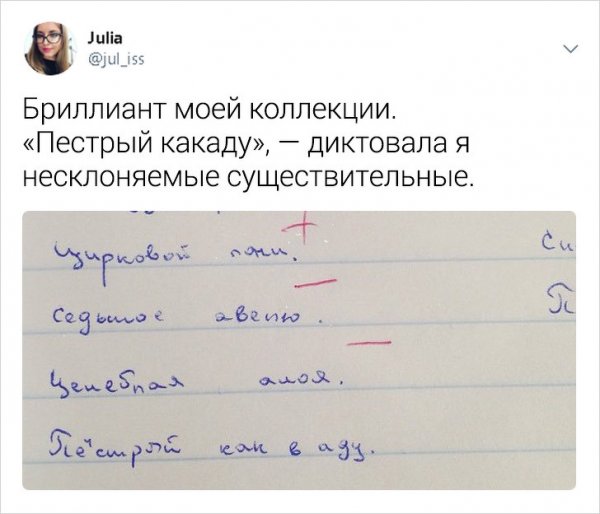 Julia
@jul_iss
Бриллиант моей коллекции.
«Пестрый какаду», — диктовала я
несклоняемые существительные.
+
Цирковой пони. Си
—
Седьмое авеню. П
—
Целебная алоя.
Пёстрый как в аду.